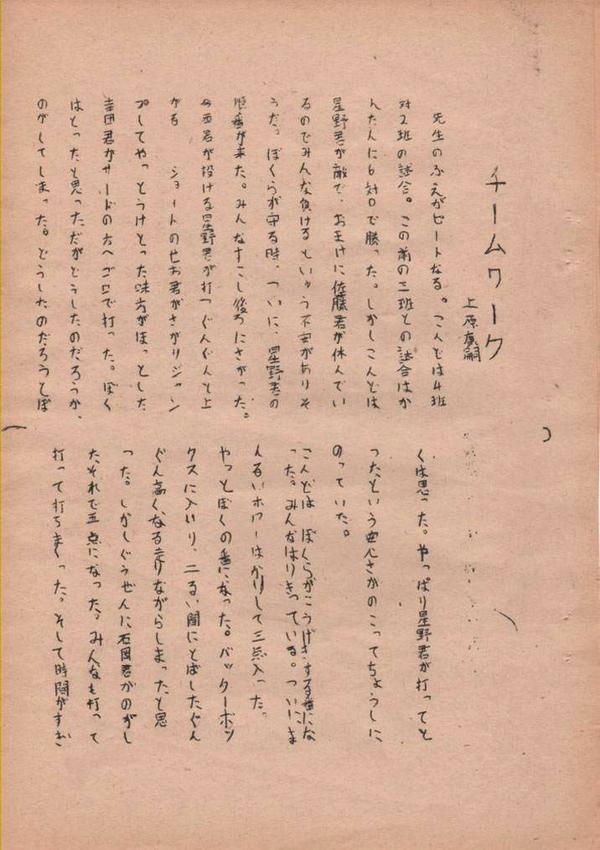 チームワーク
上原
先生のふえがピートなる。こんどは4班
対2班の試合。この前の三班との試合はか
んたんに6対0で勝った。しかしこんどは
星野君が敵で、おまけに佐藤君が休んでい
るのでみんな負けるという不安がありそ
うだ。ぼくらが守る時、ついに、星野君の
順番が来た。みんなすこし後ろにさがった。
今西君が投げる星野君が打つぐんぐんと上
がる ショートのせお君がさがりジャン
プしてやっとうけとった味方がほっとした
寺田君がサードの方へゴロで打った。ぼく
はとったと思っただがどうしたのだろうか、
のがしてしまった。どうしたのだろうとぼ
くは思った。やっぱり星野君が打ってと
ったという安心さがのこってちょうしに
のっていた。
こんどはぼくらがこうげきする番にな
った。みんなはりきっている。ついにま
んるいホワーばかりして三点入った。
やっとぼくの番になった。バッターボッ
クスに入いり、二るい間にとばしたぐん
ぐん高くなる走りながらしまったと思
った。しかしぐうぜんに石岡君がのがし
たそれで五点になった。みんなも打って
打って打ちまくった。そして時間がすぎ